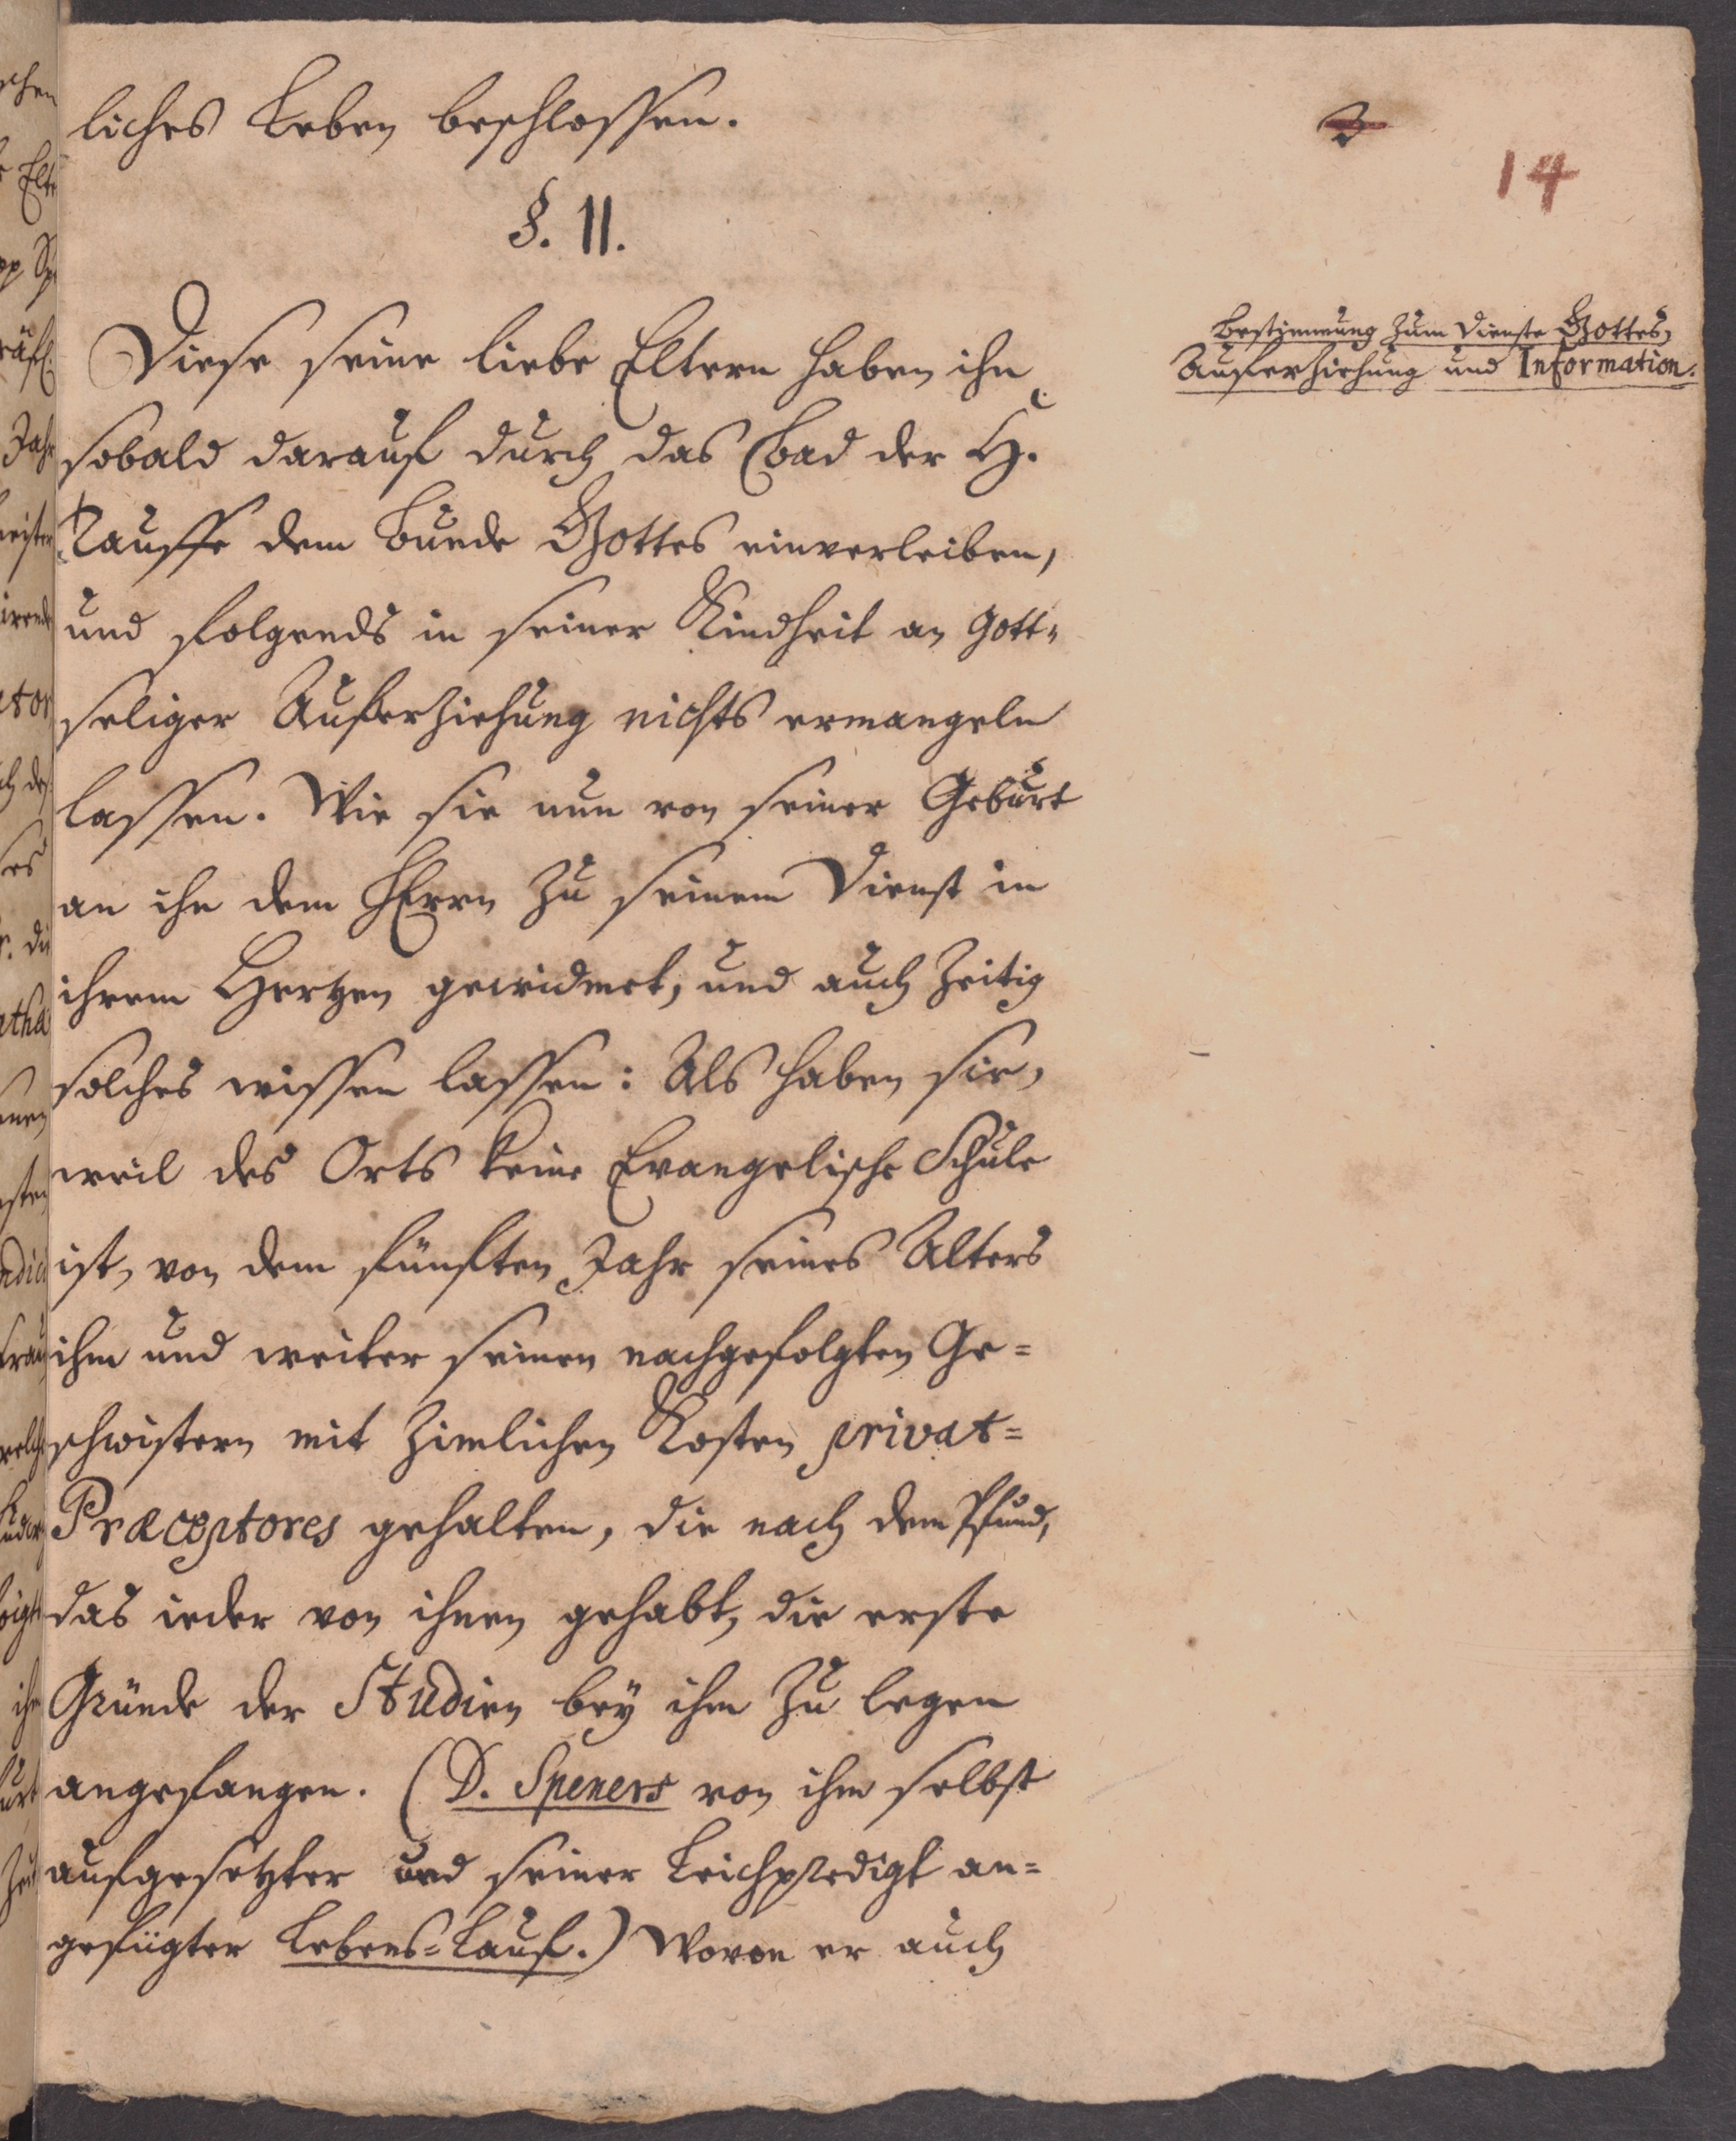 liches Leben beschlossen.
14
§. II.
Bestimmung zum Dienste Gottes,
Aufferziehung und Information.
Diese seine liebe Eltern haben ihn
sobald darauf durch das Bad der H.
Tauffe dem Bunde Gottes einverleiben,
und folgends in seiner Kindheit an gott-
seliger Aufferziehung nichts ermangeln
lassen. Wie sie nun von seiner Geburt
an ihn dem HErrn zu seinem Dienst in
ihrem Hertzen gewidmet, und auch zeitig
solches wissen lassen: Als haben sie,
weil des Orts keine Evangelische Schule
ist, von dem fünften Jahr seines Alters
ihm und weiter seinen nachgefolgten Ge=
schwistern mit zimlichen Kosten privat=
Præceptores gehalten, die nach dem Pfund,
das ieder von ihnen gehabt, die erste
Gründe der Studien bey ihm zu legen
angefangen. (D. Speners von ihm selbst
aufgesetzter und seiner Leichpredigt an=
gefügter Lebens=Lauf.) Wovon er auch